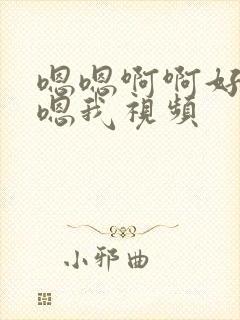 嗯嗯啊啊好
嗯我視頻
小邪曲